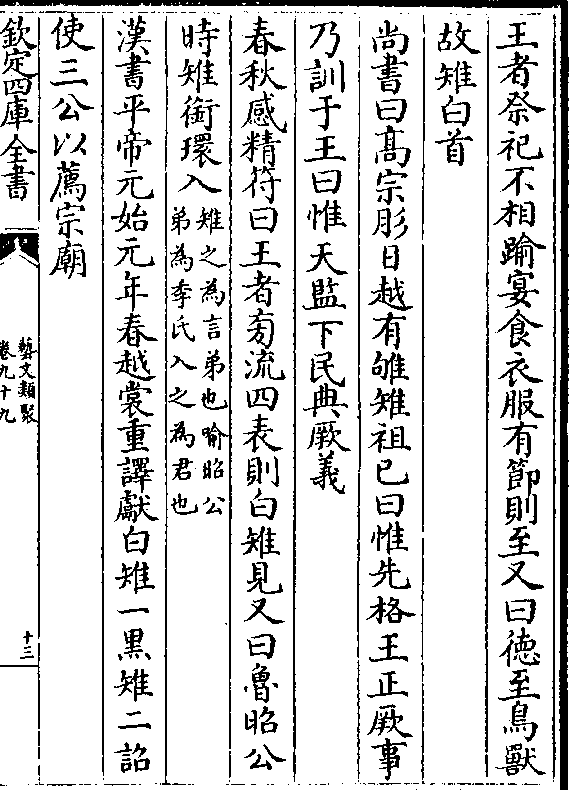 王者祭祀不相踰宴食衣服有節則至又曰徳至鳥獸
故雉白首
尚書曰髙宗肜日越有雊雉祖已曰惟先格王正厥事
乃訓于王曰惟天監下民典厥義
春秋感精符曰王者旁流四表則白雉見又曰魯昭公
時雉銜環入雉之為言弟也喻昭公
弟為季氏入之為君也
漢書平帝元始元年春越裳重譯獻白雉一黒雉二詔
使三公以薦宗廟
欽定四庫全書
藝文類聚
卷九十九
十三